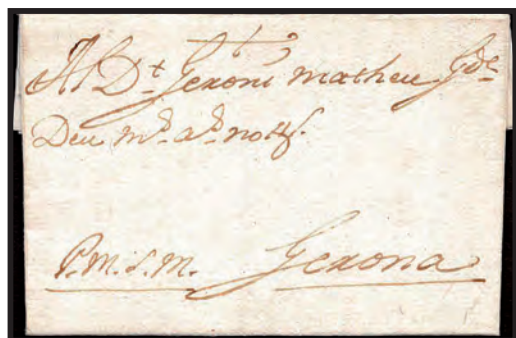 Al Dt. Geroni Matheu Gde
Deu ms. as.
P.M.S.M. Gerona